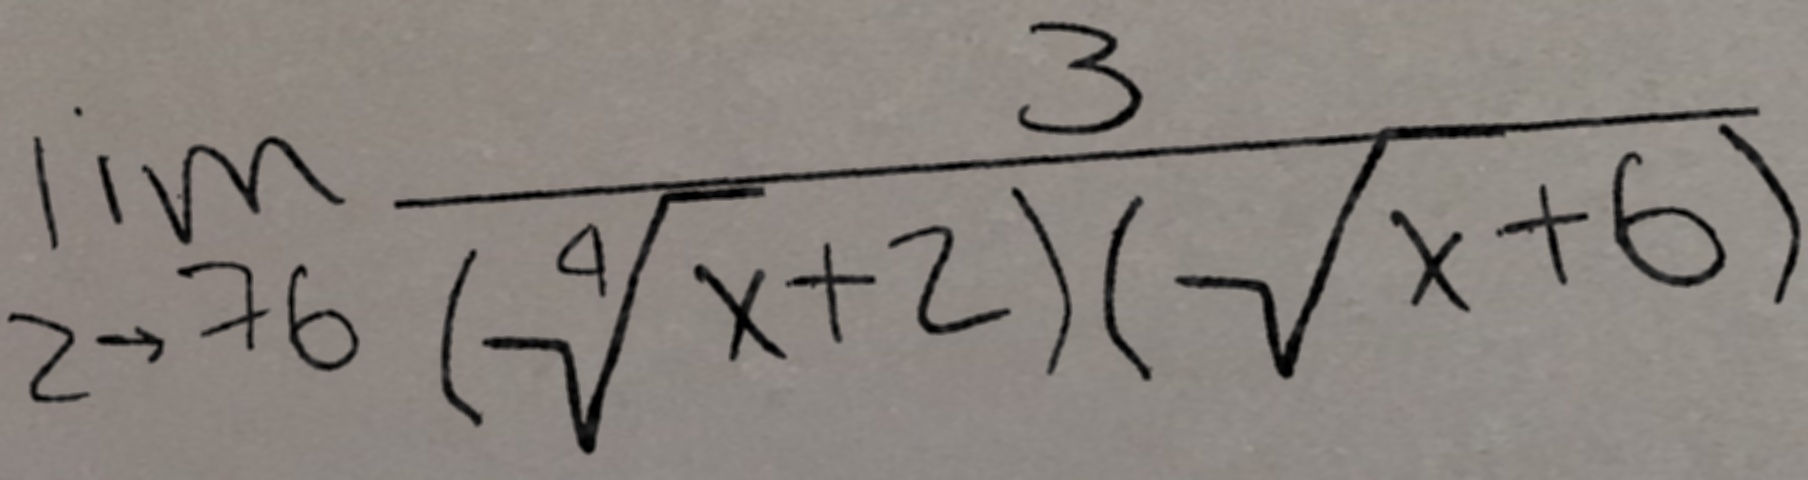 lim 2→76 3/((∜x+2)(√x+6))